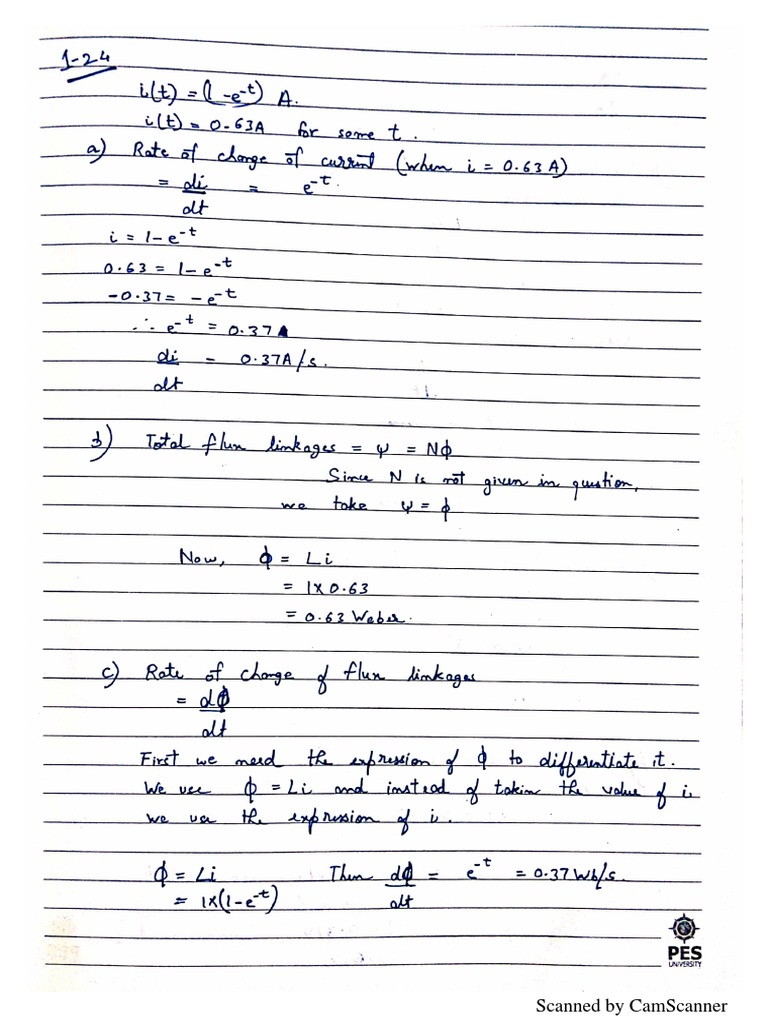 1-24
i(t) = (1-e^-t) A.
i(t) = 0.63A for some t.
a) Rate of change of current (when i = 0.63A)
= di/dt = e^-t.
i = 1-e^-t
0.63 = 1-e^-t
-0.37 = -e^-t
∴ e^-t = 0.37
di/dt = 0.37A/s.
b) Total flux linkages = ψ = Nϕ
Since N is not given in question,
we take ψ = ϕ
Now, ϕ = Li
= 1x0.63
= 0.63 Weber.
c) Rate of change of flux linkages
= dϕ/dt
First we need the expression of ϕ to differentiate it.
We use ϕ = Li and instead of takin the value of i,
we use the expression of i.
ϕ = Li Then dϕ/dt = e^-t = 0.37 Wb/s.
= 1x(1-e^-t)
PES
UNIVERSITY
Scanned by CamScanner